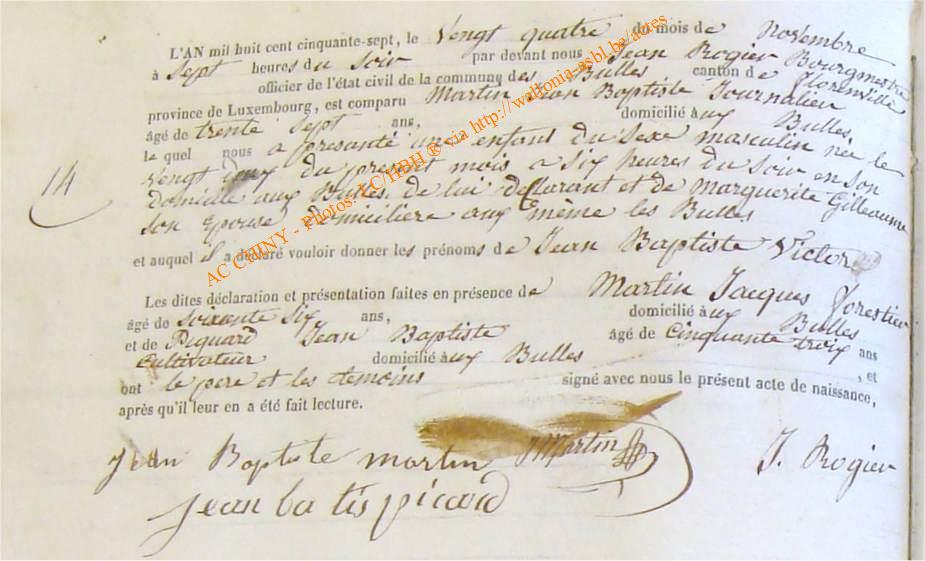 L'AN mil huit cent cinquante-sept, le Vengt quatre du mois de Novembre
à Sept heures du Soir par devant nous Jean Rogier Bourgmestre
officier de l'état civil de la commune des Bulles canton de Florenville
province de Luxembourg, est comparu Martin Jean Baptiste Journalier
âgé de trente Sept ans, domicilié aux Bulles,
le quel nous a présenté une enfant du Sexe masculin née le
Vengt deux du présent mois a Six heures du Soir en Son
domicile aux Bulles, de lui déclarant et de Marguerite Gilleaume
son Epouse domicilière aux même les Bulles
14
et auquel il a déclaré vouloir donner les prénoms de Jean Baptiste Victor
Les dites déclaration et présentation faites en présence de Martin Jacques forestier
âgé de Soixante Six ans, domicilié aux Bulles
et de Piquard Jean Baptiste âgé de Cinquante troix ans
Cultivateur domicilié aux Bulles , et
ont le père et les témoins signé avec nous le présent acte de naissance,
après qu'il leur en a été fait lecture.
Jean Baptiste martin JMartin J. Rogier
jean ba tis picard
AC CHINY - Photos: LC HBH ® via http://wallonia-asbl.be/actes